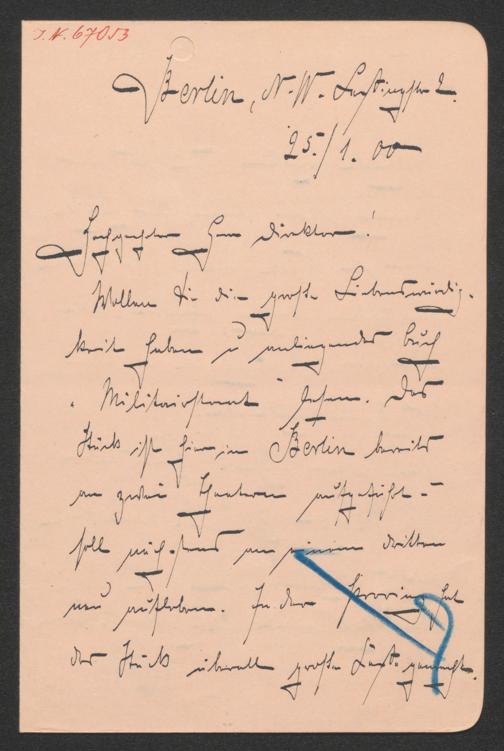 I.N. 67053
Berlin, N.W. Lessingstr 2.
25./1. 00
Hochgeehrter Herr Direktor!
Wollen Sie die große Liebenswürdig-
keit haben u anliegendes Buch
"Militairstaat" lesen. Das
Stück ist hier in Berlin bereits
an zwei Theatern aufgeführt -
soll nächstens an einem dritten
neu aufleben. In der Provinz hat
das Stück überall große gemacht.